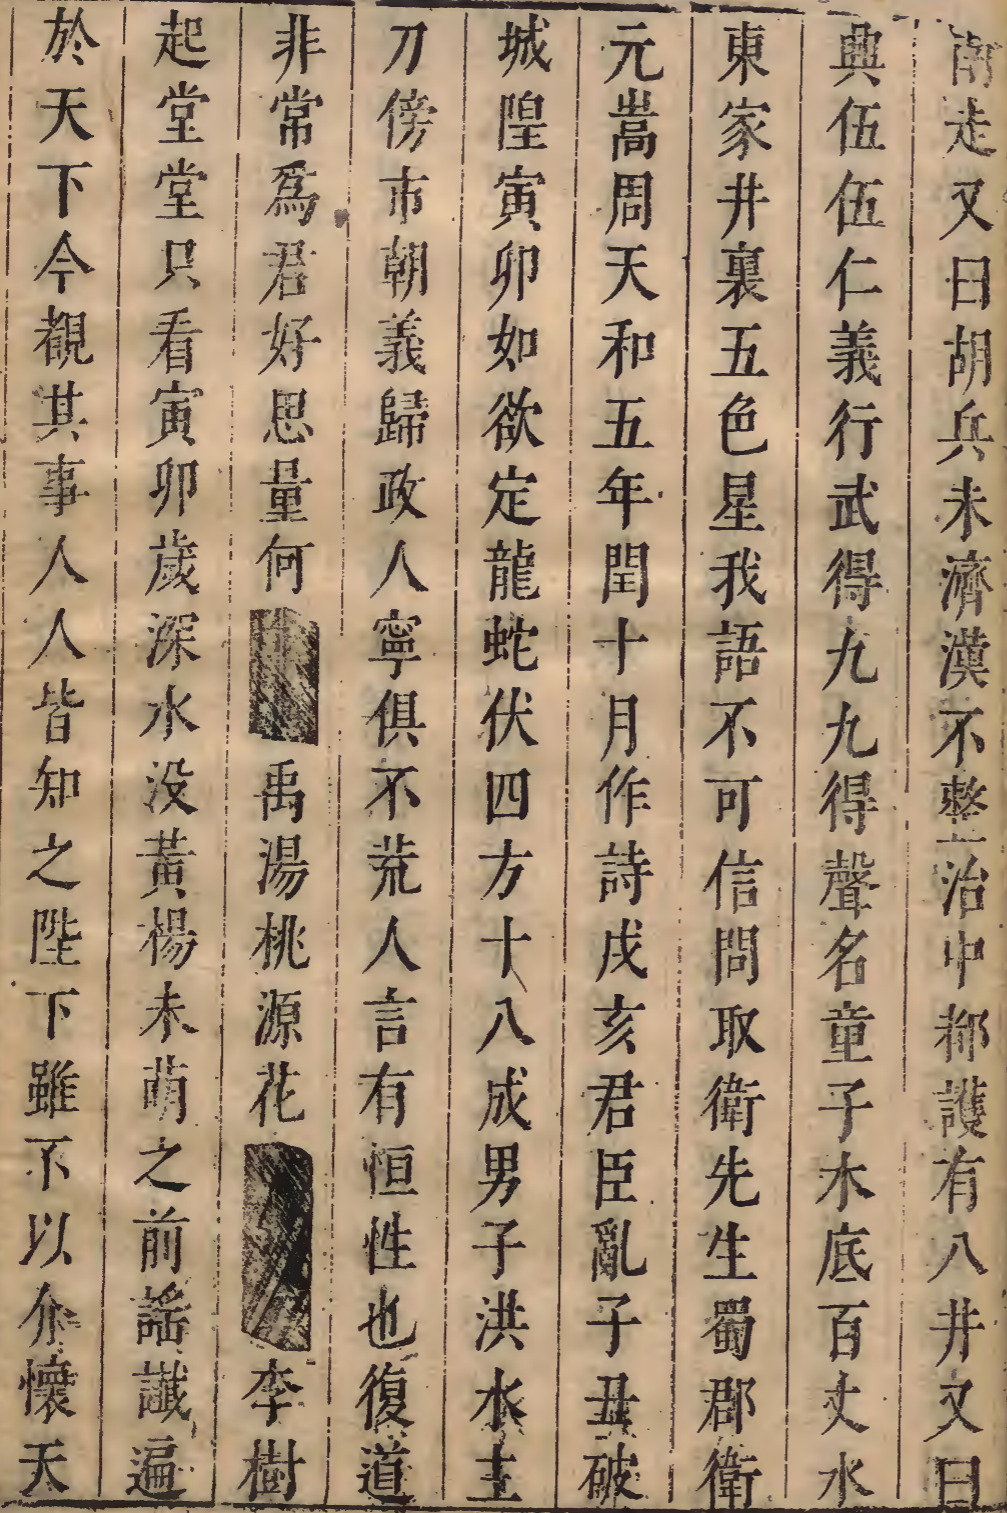 南走又曰胡兵未濟漢不整治中都護有八井又曰
興伍伍仁義行武得九九得聲名童子木底百丈水
東家井裏五色星我語不可信問取衛先生蜀郡衛
元嵩周天和五年閏十月作詩戌亥君臣亂子丑破
城隍寅卯如欲定龍蛇伏四方十八成男子洪水主
刀傍市朝義歸政人寧俱不荒人言有恒性也復道
非常爲君好思量何禹湯桃源花李樹
起堂堂只看寅卯歲深水没黃楊未萌之前謠讖遍
於天下今覩其事人人皆知之陛下雖不以介懷天